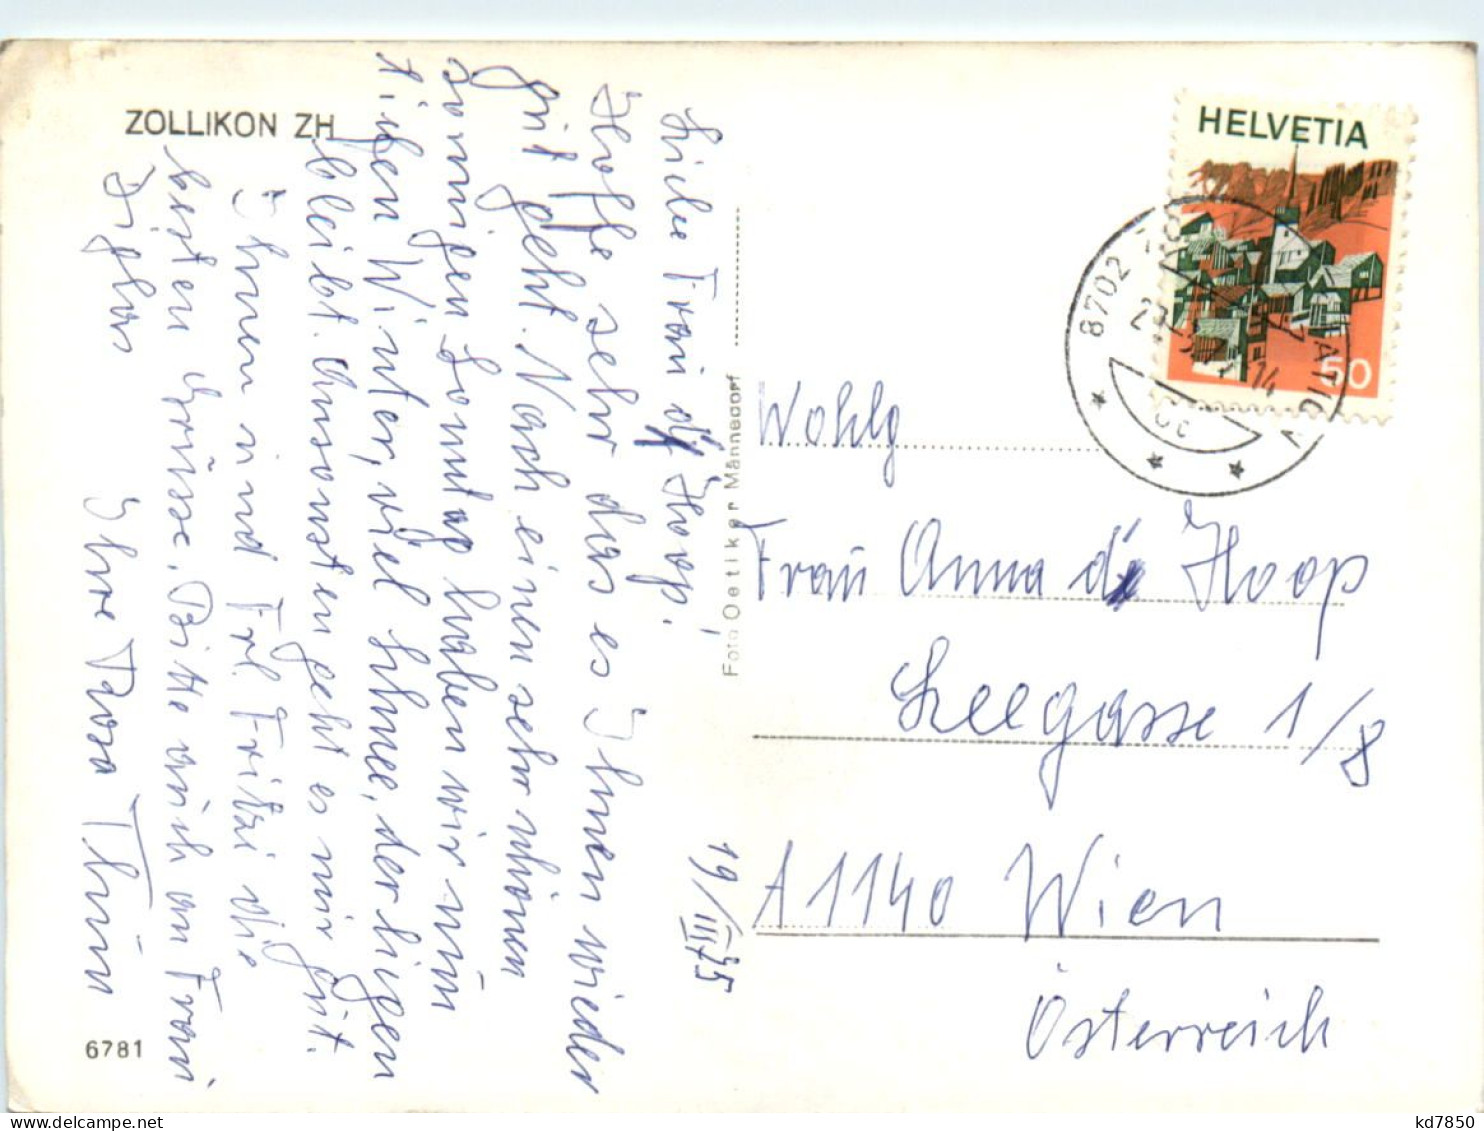 ZOLLIKON ZH
Liebe Frau d' Hoop!
Hoffe sehr das es Ihnen wieder
gut geht. Nach einen sehr schönen
sonnigen Sonntag haben wir nun
tiefen Winter, viel Schnee, der liegen
bleibt. Ansonsten geht es mir gut.
Ihnen und Frl. Fritzi die
besten Grüsse. Bitte auch an Frau
Ihre Rosa Thum
19/III 75
6781
Foto Oetiker Männedorf
HELVETIA
50
8702
14
Wohlg
Frau Anna d' Hoop
Seegasse 1/8
A 1140 Wien
Österreich
kd7850